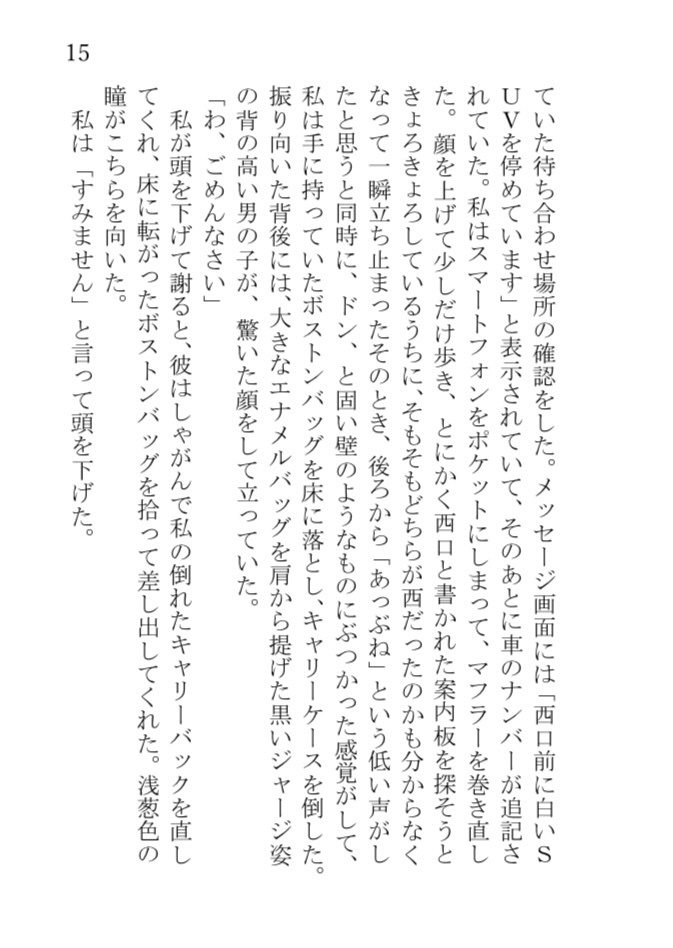 15
ていた待ち合わせ場所の確認をした。メッセージ画面には「西口前に白いS
UVを停めています」と表示されていて、そのあとに車のナンバーが追記さ
れていた。私はスマートフォンをポケットにしまって、マフラーを巻き直し
た。顔を上げて少しだけ歩き、とにかく西口と書かれた案内板を探そうと
きょろきょろしているうちに、そもそもどちらが西だったのかも分からなく
なって一瞬立ち止まったそのとき、後ろから「あっぶね」という低い声がし
たと思うと同時に、ドン、と固い壁のようなものにぶつかった感覚がして、
私は手に持っていたボストンバッグを床に落とし、キャリーケースを倒した。
振り向いた背後には、大きなエナメルバッグを肩から提げた黒いジャージ姿
の背の高い男の子が、驚いた顔をして立っていた。
「わ、ごめんなさい」
私が頭を下げて謝ると、彼はしゃがんで私の倒れたキャリーバックを直し
てくれ、床に転がったボストンバッグを拾って差し出してくれた。浅葱色の
瞳がこちらを向いた。
私は「すみません」と言って頭を下げた。